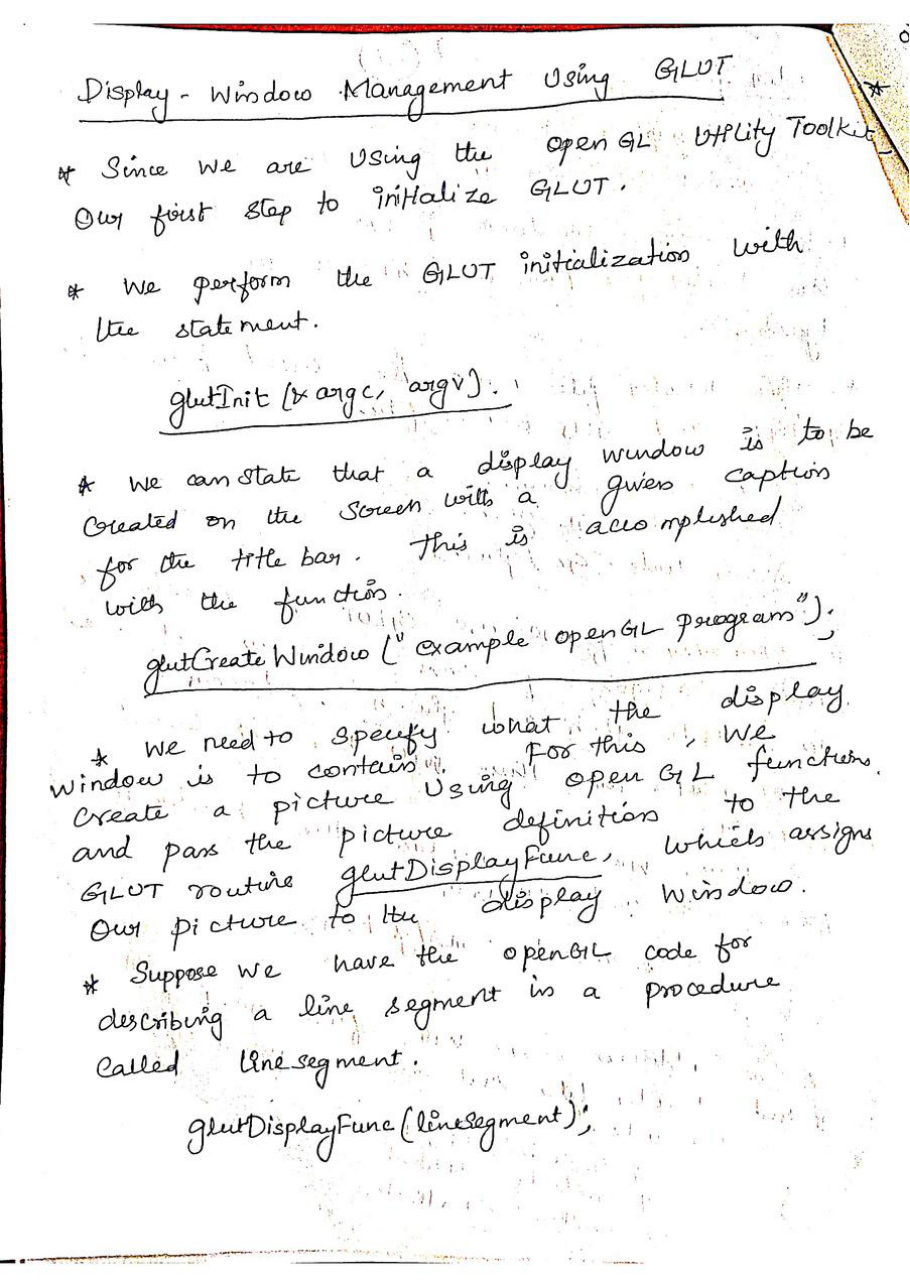 Display - Window Management Using GLUT
* Since we are Using the open GL Utility Toolkit
Our first step to initialize GLUT.
* we perform the GLUT initialization with
the statement.
glutInit (& argc, argv).
* we can state that a display window is to be
Created on the Screen with a given caption
for the title bar. This is accomplished
with the function.
glutCreate Window ("example openGL program");
* we need to specify what the display
window is to contain. For this, we
create a picture Using open GL functions
and pass the picture definition to the
GLUT routine glutDisplayFunc, which assigns
Our picture to the display window.
* Suppose we have the openGL code for
describing a line segment in a procedure
Called linesegment.
glutDisplayFunc (linesegment);